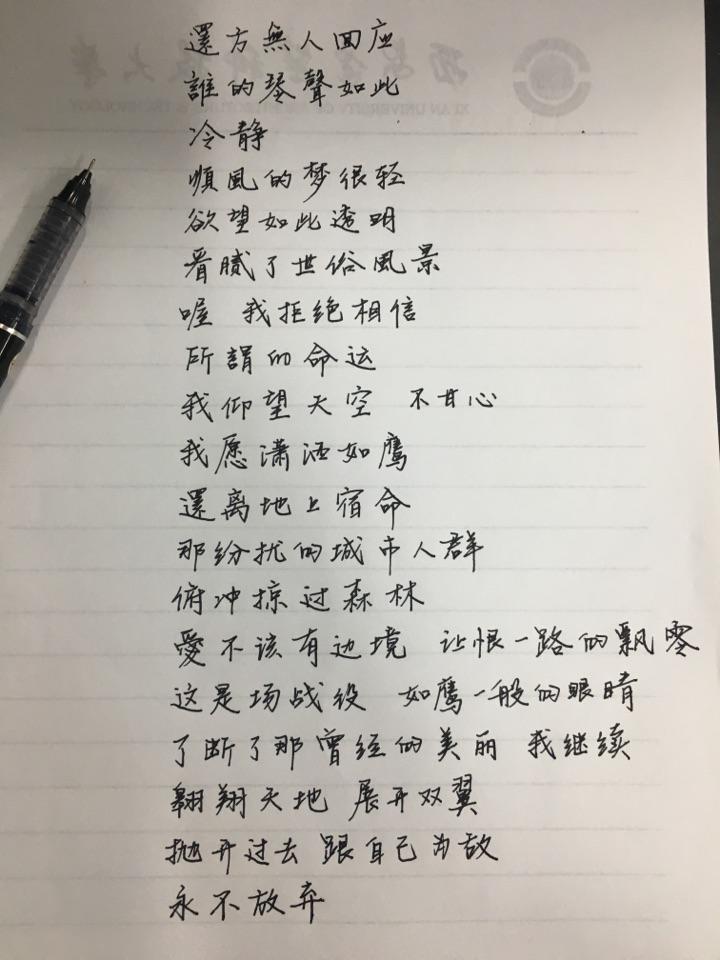 還方無人回应
誰的琴聲如此
冷静
順風的梦很轻
欲望如此透明
看腻了世俗風景
喔 我拒绝相信
所謂的命运
我仰望天空 不甘心
我愿潇洒如鹰
還离地上宿命
那纷扰的城市人群
俯冲掠过森林
愛不该有边境 让恨一路的飘零
这是场战役 如鹰一般的眼睛
了断了那曾经的美丽 我继续
翱翔天地 展开双翼
抛开过去 跟自己为敌
永不放弃